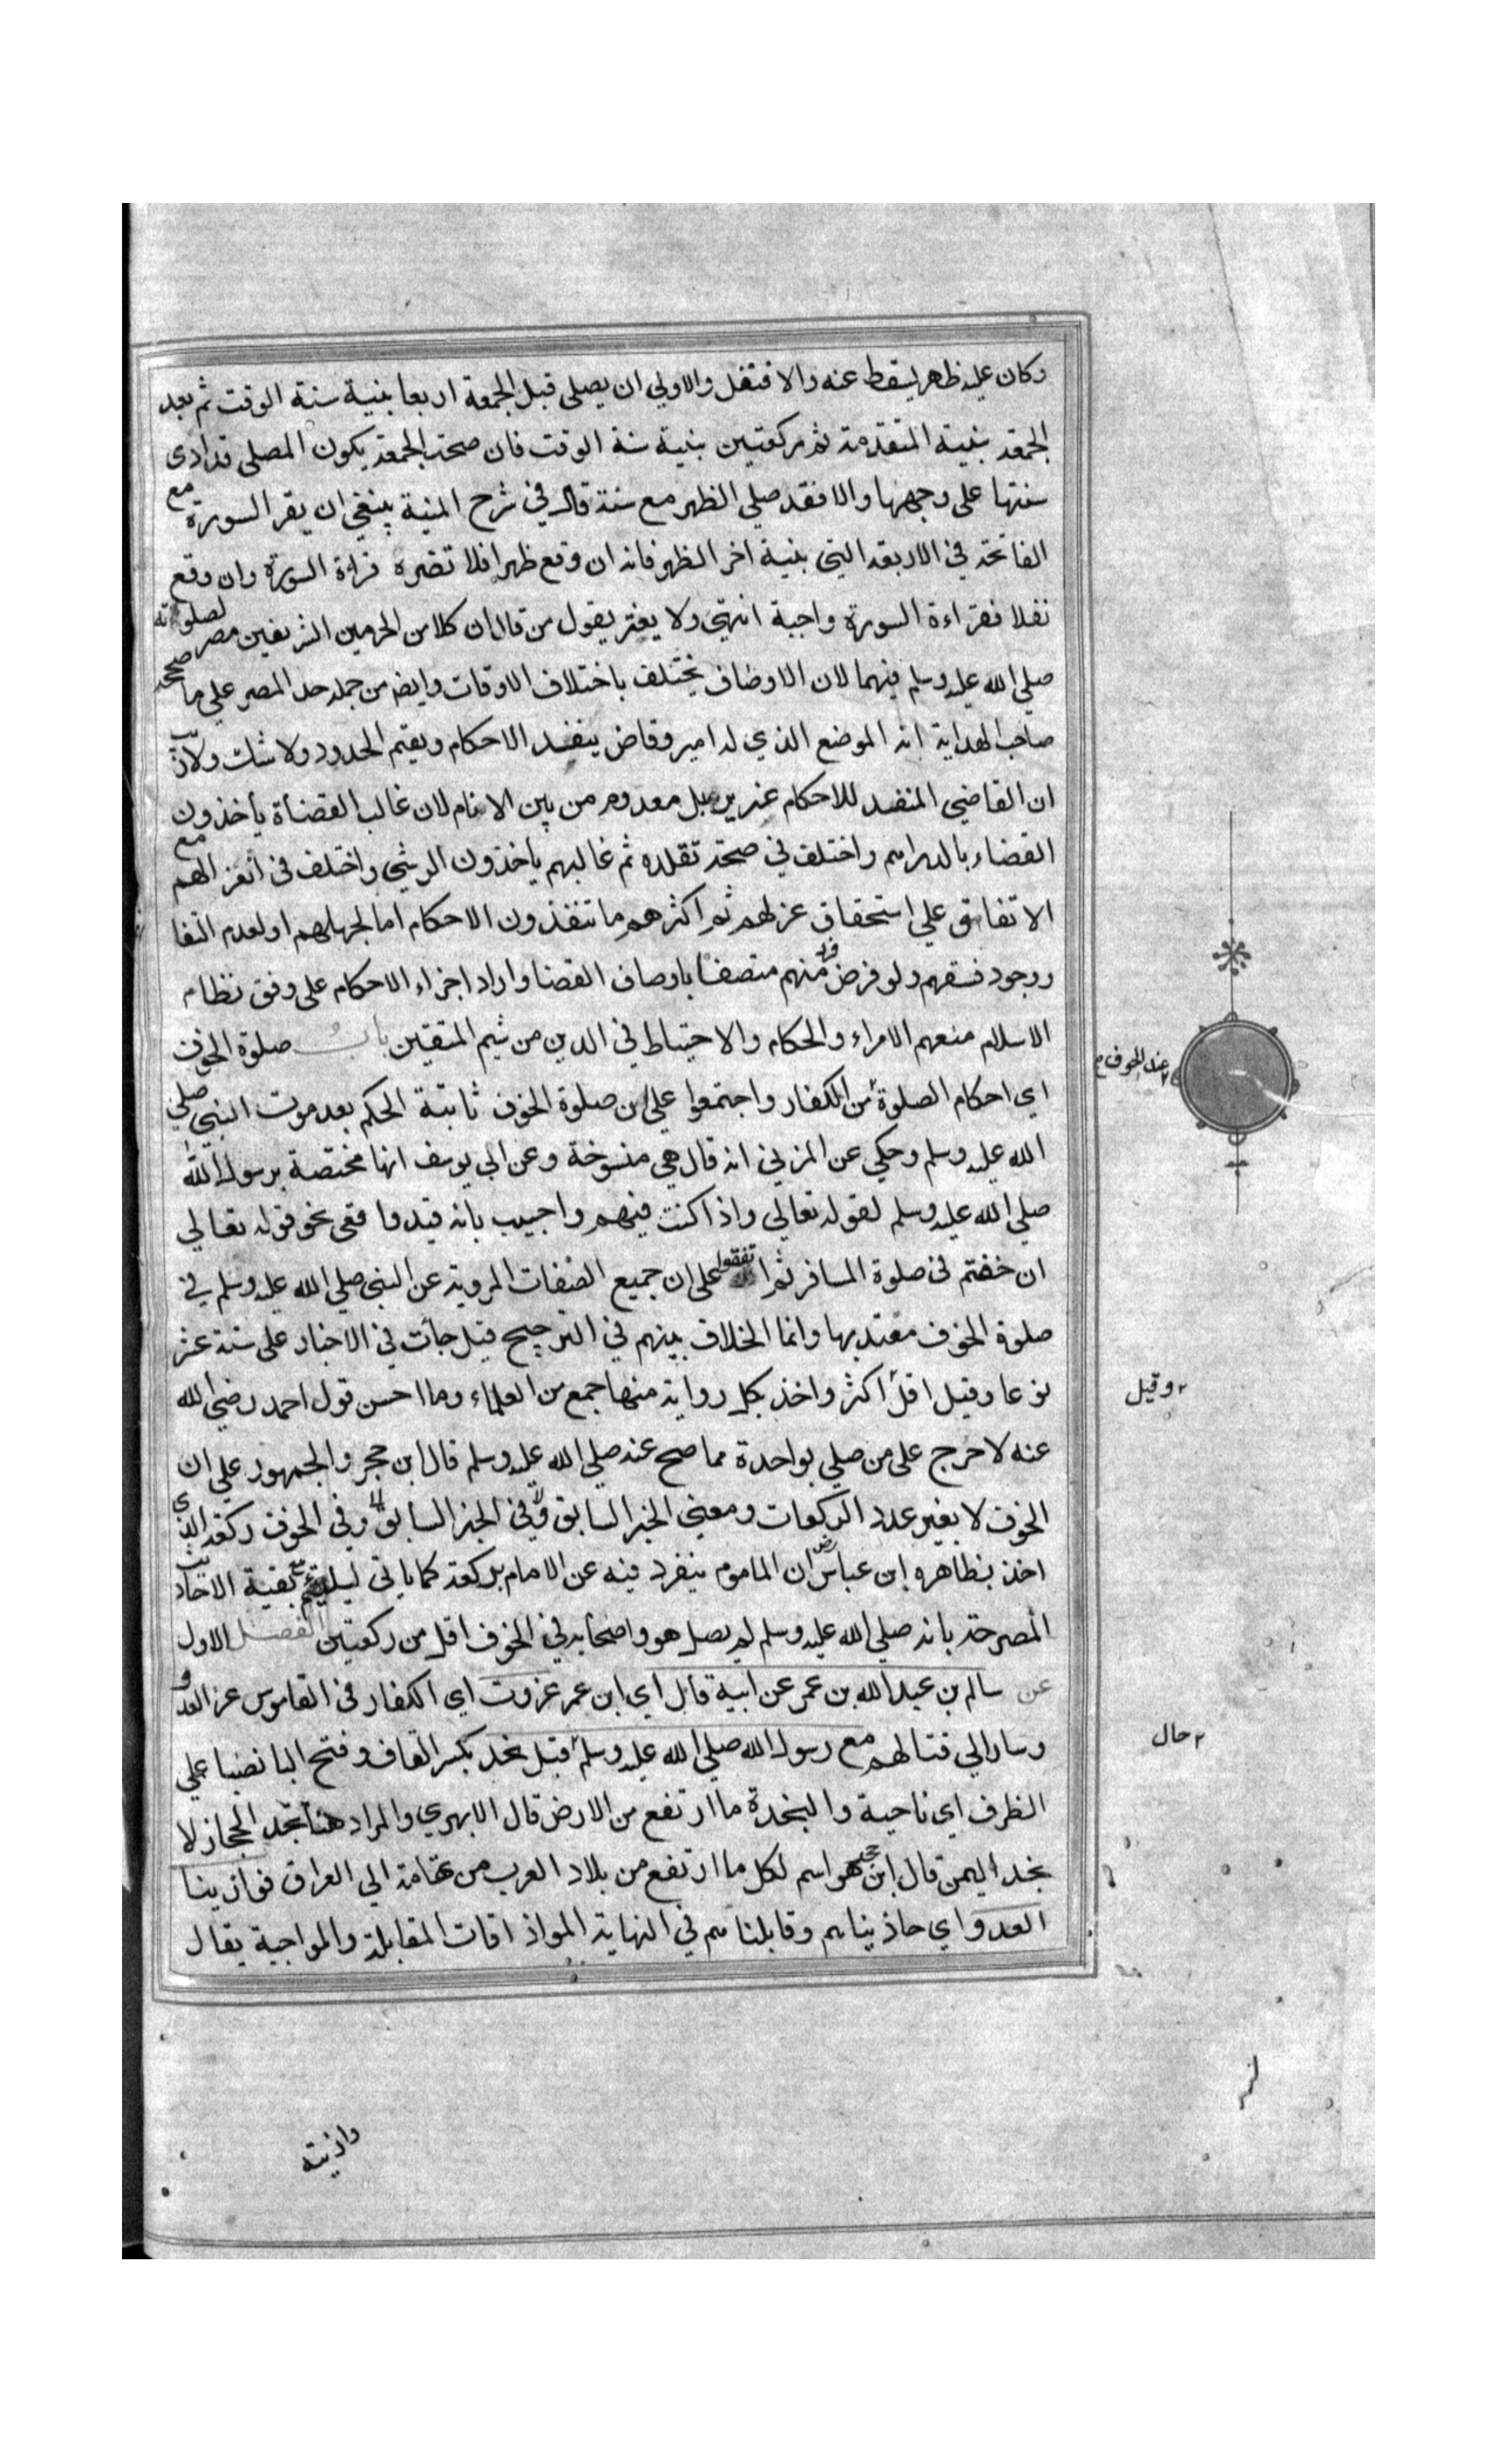 وكان عليه ظهر يسقط عنه والا فنفل والاولي ان يصلي قبل الجمعة اربعا بنية سنة الوقت ثم بعد
الجمعة بنية المتقدمة ثم ركعتين بنية سنة الوقت فان صحت الجمعة يكون المصلي قد ادى
سنتها على وجهها والا فقد صلي الظهر مع سنته قال في شرح المنية ينبغي ان يقرا السورة مع
الفاتحة في الاربعة التي بنية اخر الظهر فانه ان وقع ظهرا فلا تضره قراءة السورة وان وقع
نفلا فقراءة السورة واجبة انتهي ولا يغتر بقول من قال ان كلا من الحرمين الشريفين مصر لصلوته
صلي الله عليه وسلم فيهما لان الاوصاف يختلف باختلاف الاوقات وايضا من جملة حد المصر علي ما صححه
صاحب الهداية انه الموضع الذي له امير وقاض ينفذ الاحكام ويقيم الحدود ولا شك ولا ريب
ان القاضي المنفذ للاحكام عزيز بل معدوم من بين الانام لان غالب القضاة يأخذون
القضاء بالدراهم واختلف في صحة تقلده ثم غالبهم ياخذون الرشي واختلف في انعزالهم مع
الاتفاق علي استحقاق عزلهم ثم اكثرهم ما تنفذون الاحكام اما لجهلهم او لعدم التفا
ووجود فسقهم ولو فرض فرد منهم متصفا باوصاف القضا واراد اجراء الاحكام على وفق نظام
الاسلام منعهم الامراء والحكام والاحتياط في الدين من شيم المتقين باب صلوة الخوف
اي احكام الصلوة من الكفار واجتمعوا علي ان صلوة الخوف ثابتة الحكم بعد موت النبي صلي
عند الخوف
الله عليه وسلم وحكي عن المزني انه قال هي منسوخة وعن ابي يوسف انها مختصة برسول الله
صلي الله عليه وسلم لقوله تعالي واذا كنت فيهم واجيب بانه قيد واقعي نحو قوله تعالي
ان خفتم في صلوة المسافر ثم اتفقوا على ان جميع الصفات المروية عن النبي صلي الله عليه وسلم في
صلوة الخوف معتد بها وانما الخلاف بينهم في الترجيح قيل جأت في الاخبار على ستة عشر
نوعا وقيل اقل اكثر واخذ بكل رواية منها جمع من العلماء وما احسن قول احمد رضي الله
وقيل
عنه لا حرج على من صلي بواحدة مما صح عنه صلي الله عليه وسلم قال ابن حجر والجمهور علي ان
الخوف لا يغير عدد الركعات ومعني الخبر السابق وفي الخبر السابق وفي الخوف ركعة الذي
اخذ بظاهره ابن عباس رض ان الماموم ينفرد فيه عن الامام بركعة كما ياتي بقية الاحاديث
المصرحة بانه صلي الله عليه وسلم لم يصل هو واصحابه في الخوف اقل من ركعتين الفصل الاول
عن سالم بن عبد الله بن عمر عن ابية قال اي ابن عمر غزوت اي الكفار في القاموس غزا العدو
وسار الي قتالهم مع رسول الله صلي الله عليه وسلم قبل نجد بكسر القاف وفتح البا نصبا علي
حال
الظرف اي ناحية والنجدة ما ارتفع من الارض قال الابهري والمراد هنا نجد الحجاز لا
نجد اليمن قال ابن حجر هو اسم لكل ما ارتفع من بلاد العرب من تهامة الي العراق فوازينا
العدو اي حاذيناهم وقابلناهم في النهاية الموازاة المقابلة والمواجهة يقال
وازيته